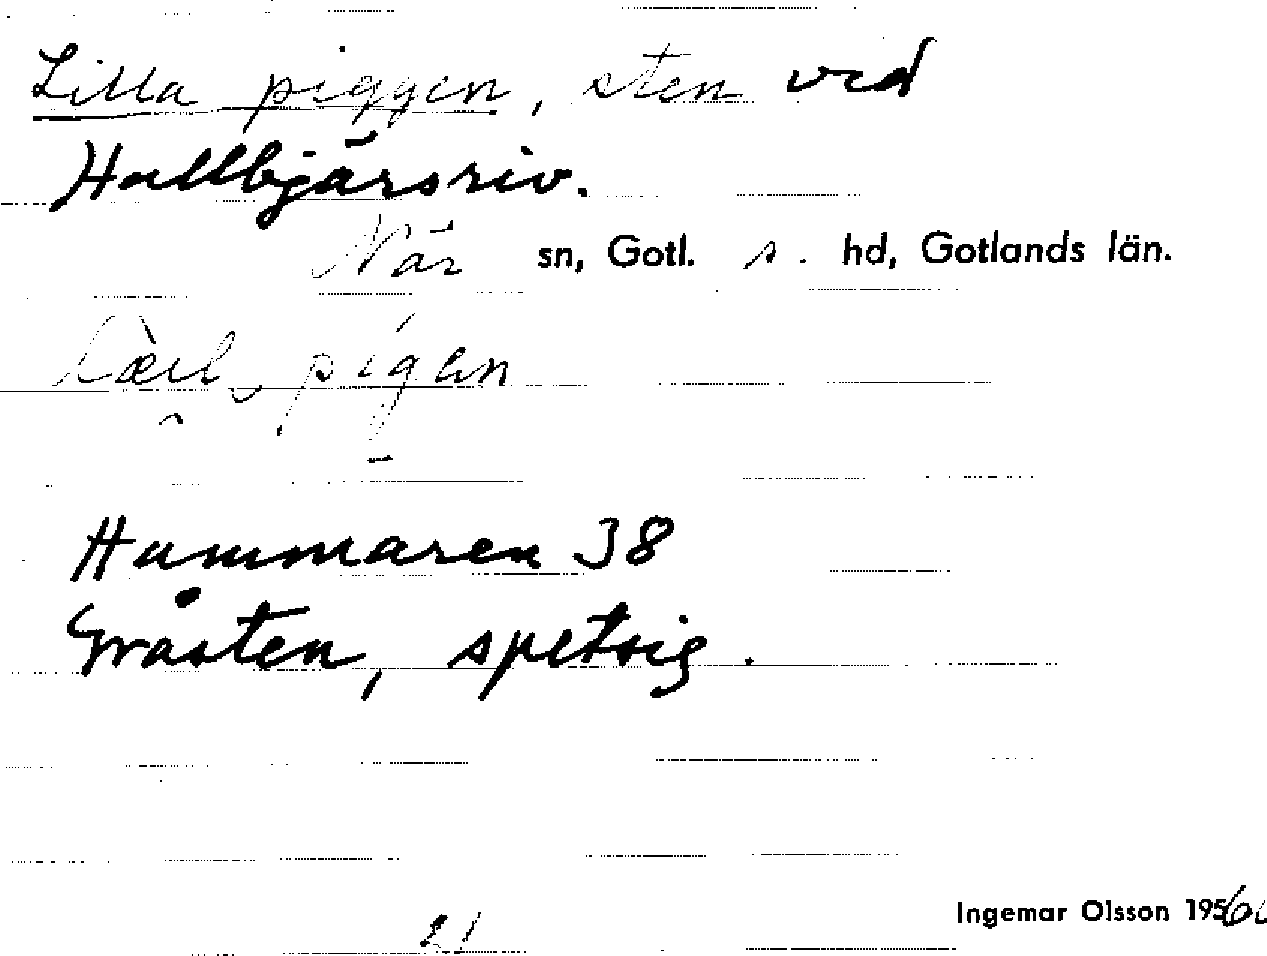 Lilla piggen, sten vid
Hallbjärsriv.
När sn, Gotl. s. hd, Gotlands län.
Hammaren 38
Gråsten, spetsig.
21
Ingemar Olsson 195